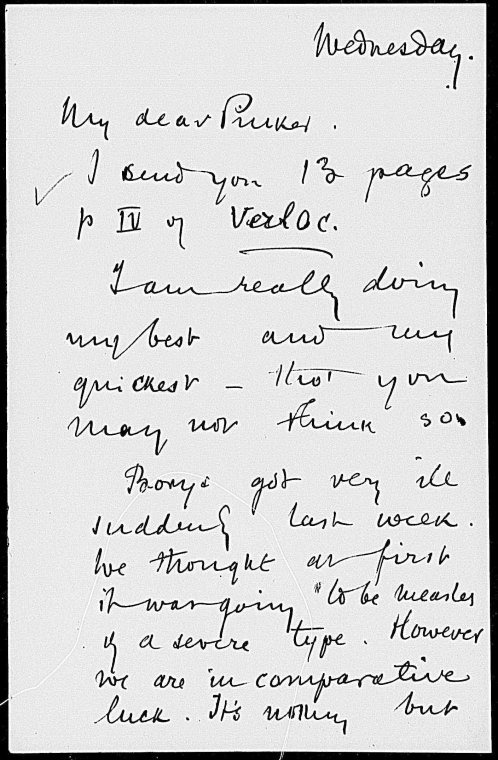 Wednesday.
My dear Pinker.
I send you 13 pages
p IV of Verloc.
I am really doing
my best and my
quickest – tho' you
may not think so.
Borys got very ill
suddenly last week.
We thought at first
it was going to be measles
of a severe type. However
we are in comparative
luck. It's nothing but